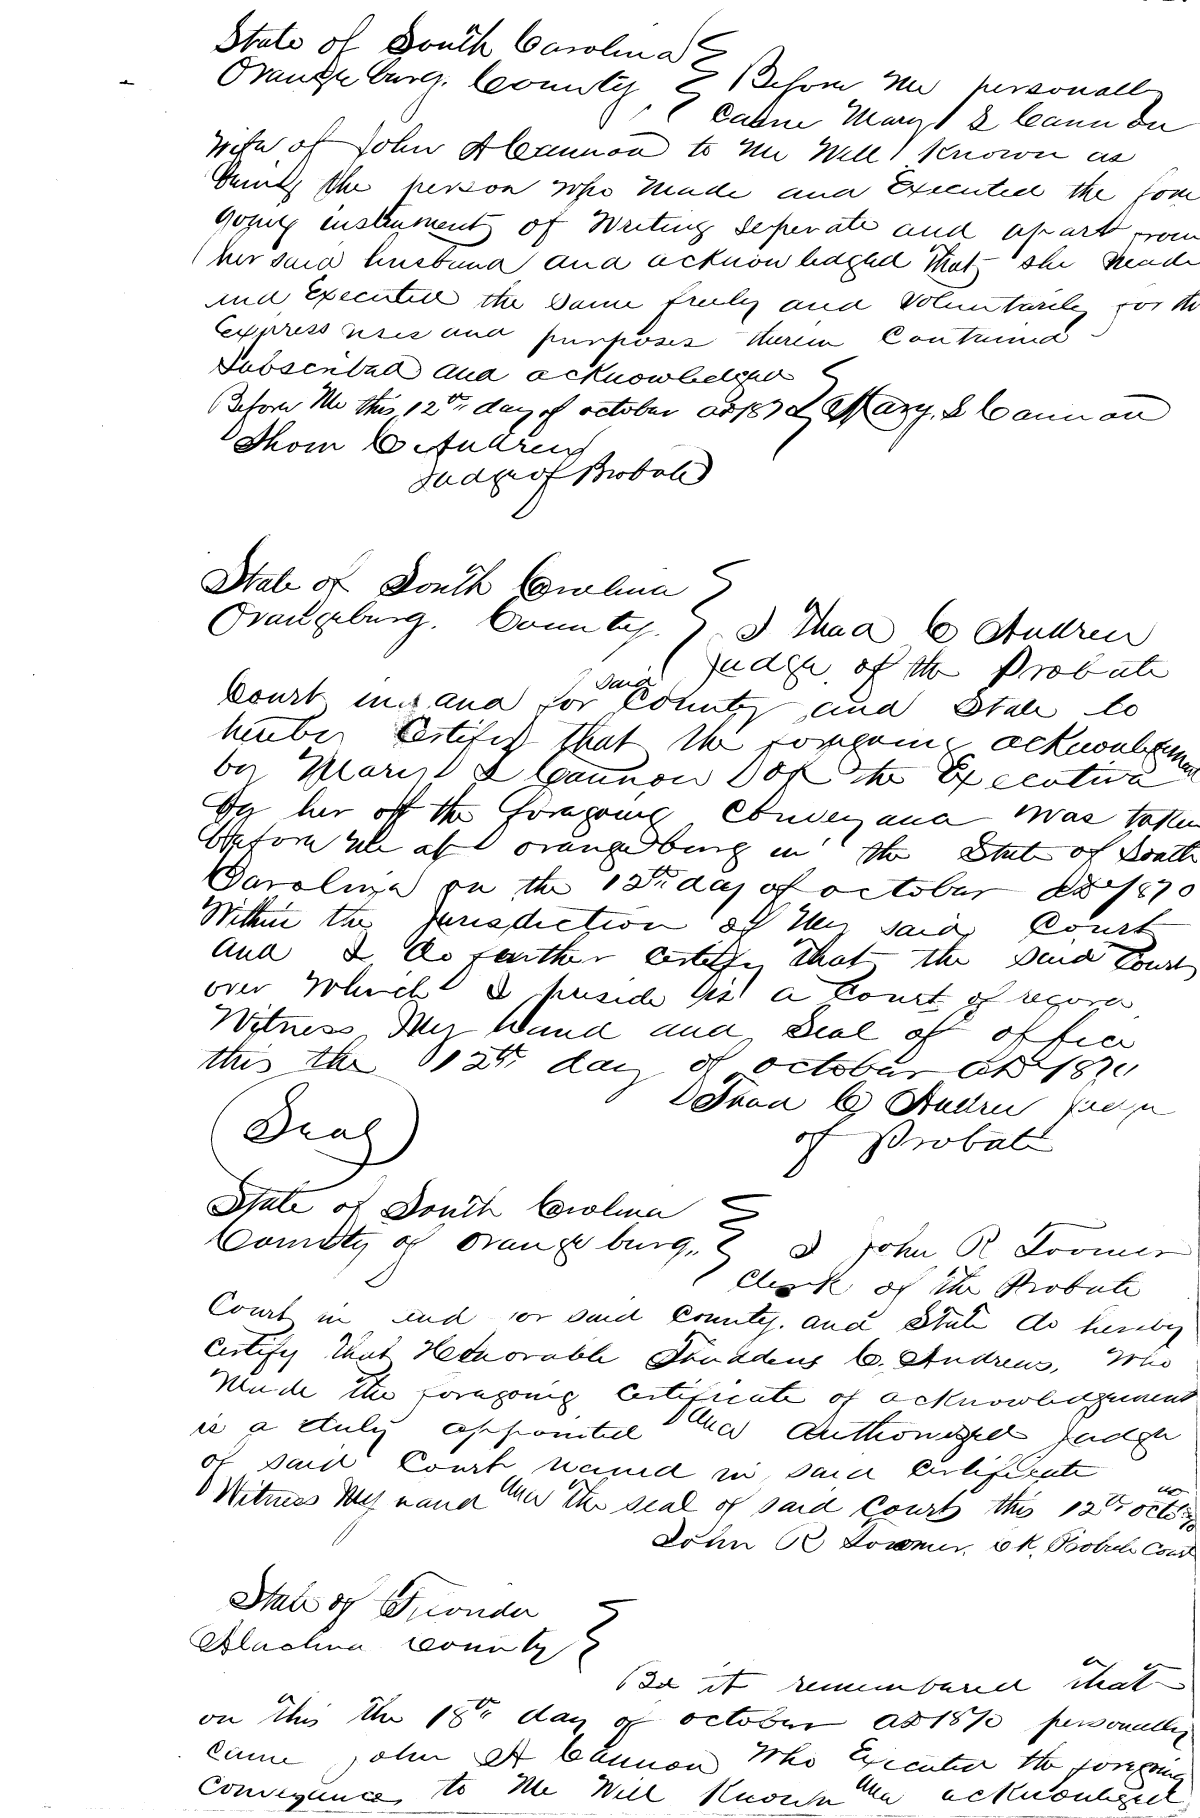 State of South Carolina
Orangeburg County Before me personally
came Mary S Cannon
wife of John A Cannon to me Well Known as
being the person who made and Executed the fore
going instrument of writing seperate and apart from
her said husband and acknowledged that she made
and Executed the same freely and voluntarily for the
express uses and purposes therein Contained
Subscribed and acknowledged
Before Me this 12th day of october AD 1870 Mary S Cannon
Thom C Andrews
Judge of Probate
State of South Carolina
Orangeburg County. I Thad C Andrews
Judge of the Probate
said
Court in and for County and State do
hereby Certify that the foregoing acknowledgement
by Mary S Cannon of the Execution
by her of the foregoing Conveyance was taken
before me at orangeburg in the State of South
Carolina on the 12th day of october AD 1870
Within the Jurisdiction of My said Court
and I do further certify that the said Court
over which I preside is a Court of record
Witness My hand and Seal of office
this the 12th day of october AD 1870
Thad C Andrews Judge
of Probate
Seal
State of South Carolina
County of orangeburg I John R Toomer
Clerk of the Probate
Court in and for said County. and State do hereby
certify that Honorable Thaddeus C. Andrews, who
Made the foregoing certificate of acknowledgement
is a duly appointed and authorized Judge
of said Court named in said certificate
Witness My hand and the seal of said Court this 12th october
John R Toomer, ck. Probate Court
State of Florida
Alachua County
Be it remembered that
on this the 18th day of october AD 1870 personally
came John A Cannon who Executed the foregoing
conveyance to Me Well Known and acknowledged